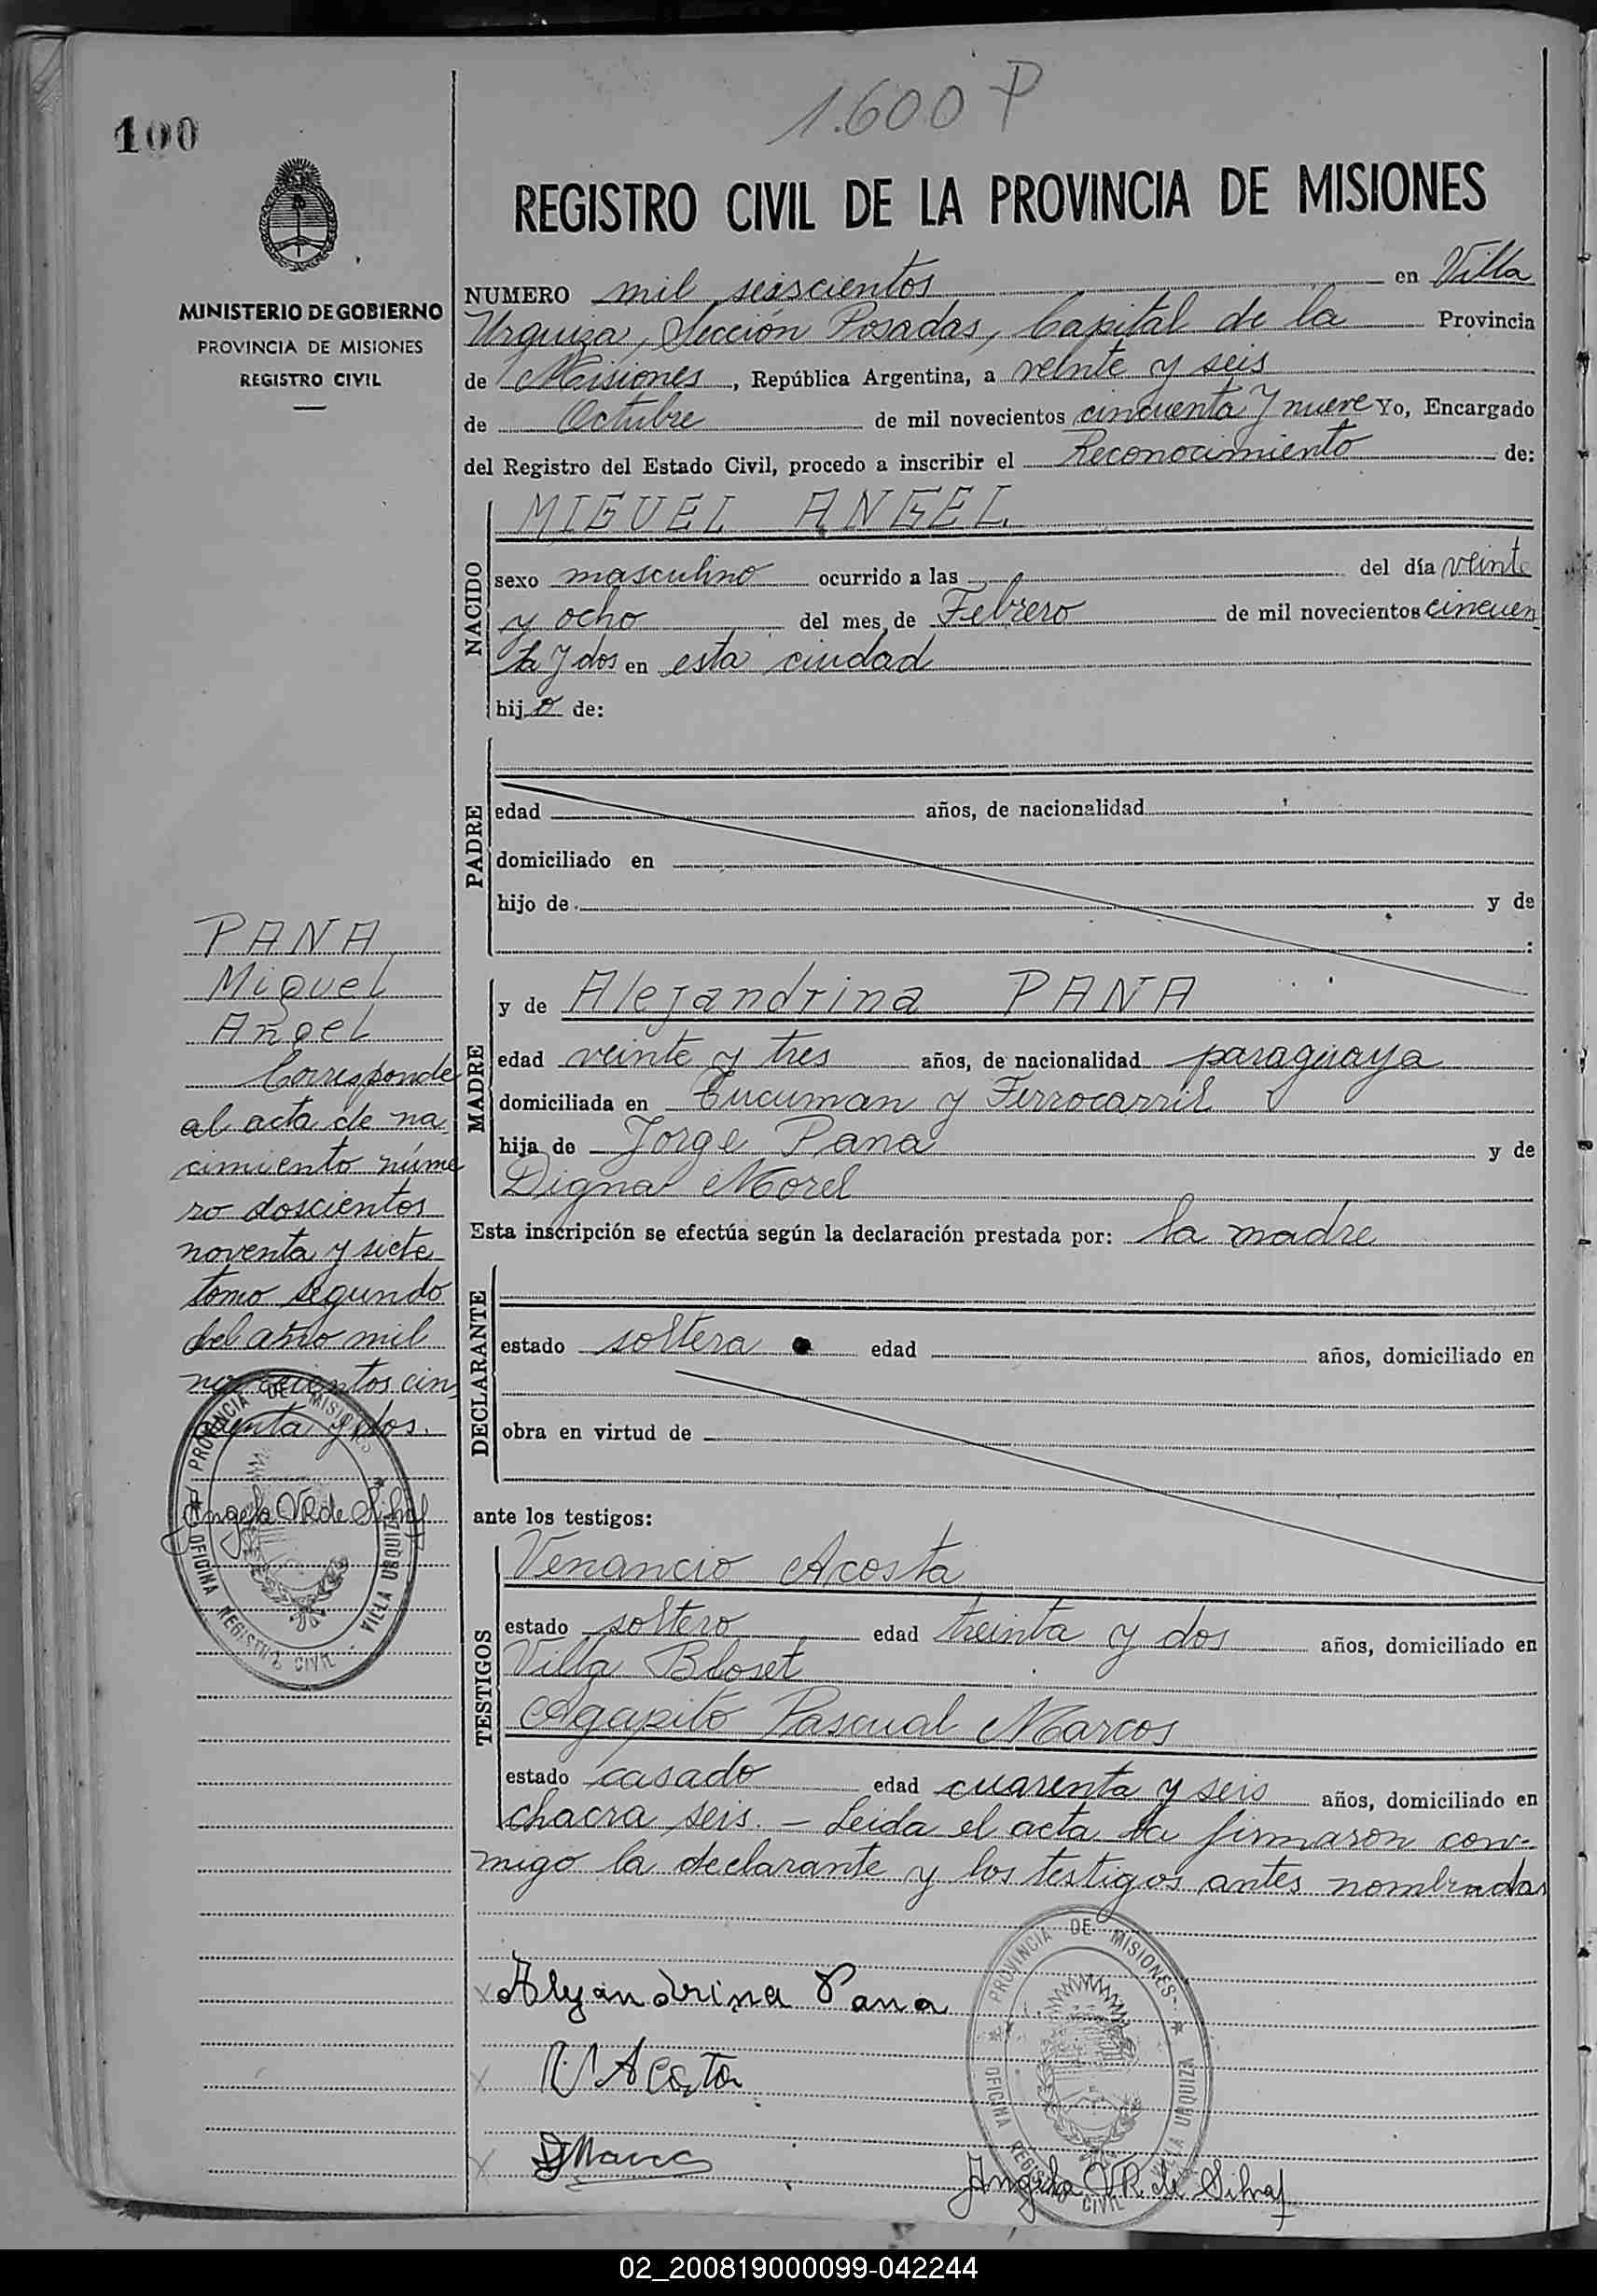 1.600 P
100
REGISTRO CIVIL DE LA PROVINCIA DE MISIONES
MINISTERIO DE GOBIERNO
PROVINCIA DE MISIONES
REGISTRO CIVIL
NUMERO mil seiscientos en Villa
Urquiza, Sección Posadas, Capital de la Provincia
de Misiones, República Argentina, a veinte y seis
de Octubre de mil novecientos cincuenta y nueve Yo, Encargado
del Registro del Estado Civil, procedo a inscribir el Reconocimiento de:
NACIDO
MIGUEL ANGEL
sexo masculino ocurrido a las del día veinte
y ocho del mes de Febrero de mil novecientos cincuen
ta y dos en esta ciudad
hijo de:
PADRE
edad años, de nacionalidad
domiciliado en
hijo de y de
:
MADRE
y de Alejandrina PANA
edad veinte y tres años, de nacionalidad paraguaya
domiciliada en Tucuman y Ferrocarril
hija de Jorge Pana y de
Digna Morel
Esta inscripción se efectúa según la declaración prestada por: la madre
DECLARANTE
estado soltera edad años, domiciliado en
obra en virtud de
ante los testigos:
TESTIGOS
Venancio Acosta
estado soltero edad treinta y dos años, domiciliado en
Villa Bloset
Agapito Pascual Marcos
estado casado edad cuarenta y seis años, domiciliado en
chacra seis. - Leida el acta la firmaron con-
migo la declarante y los testigos antes nombrados
PANA
Miguel
Angel
Corresponde
al acta de na
cimiento núme
ro doscientos
noventa y siete
tomo segundo
del año mil
novecientos cin
cuenta y dos.
Angela VR de Silva
PROVINCIA DE MISIONES
OFICINA REGISTRO CIVIL VILLA URQUIZA
Alejandrina Pana
V. Acosta
Angela VR. de Silva
PROVINCIA DE MISIONES
OFICINA REGISTRO CIVIL VILLA URQUIZA
02_200819000099-042244